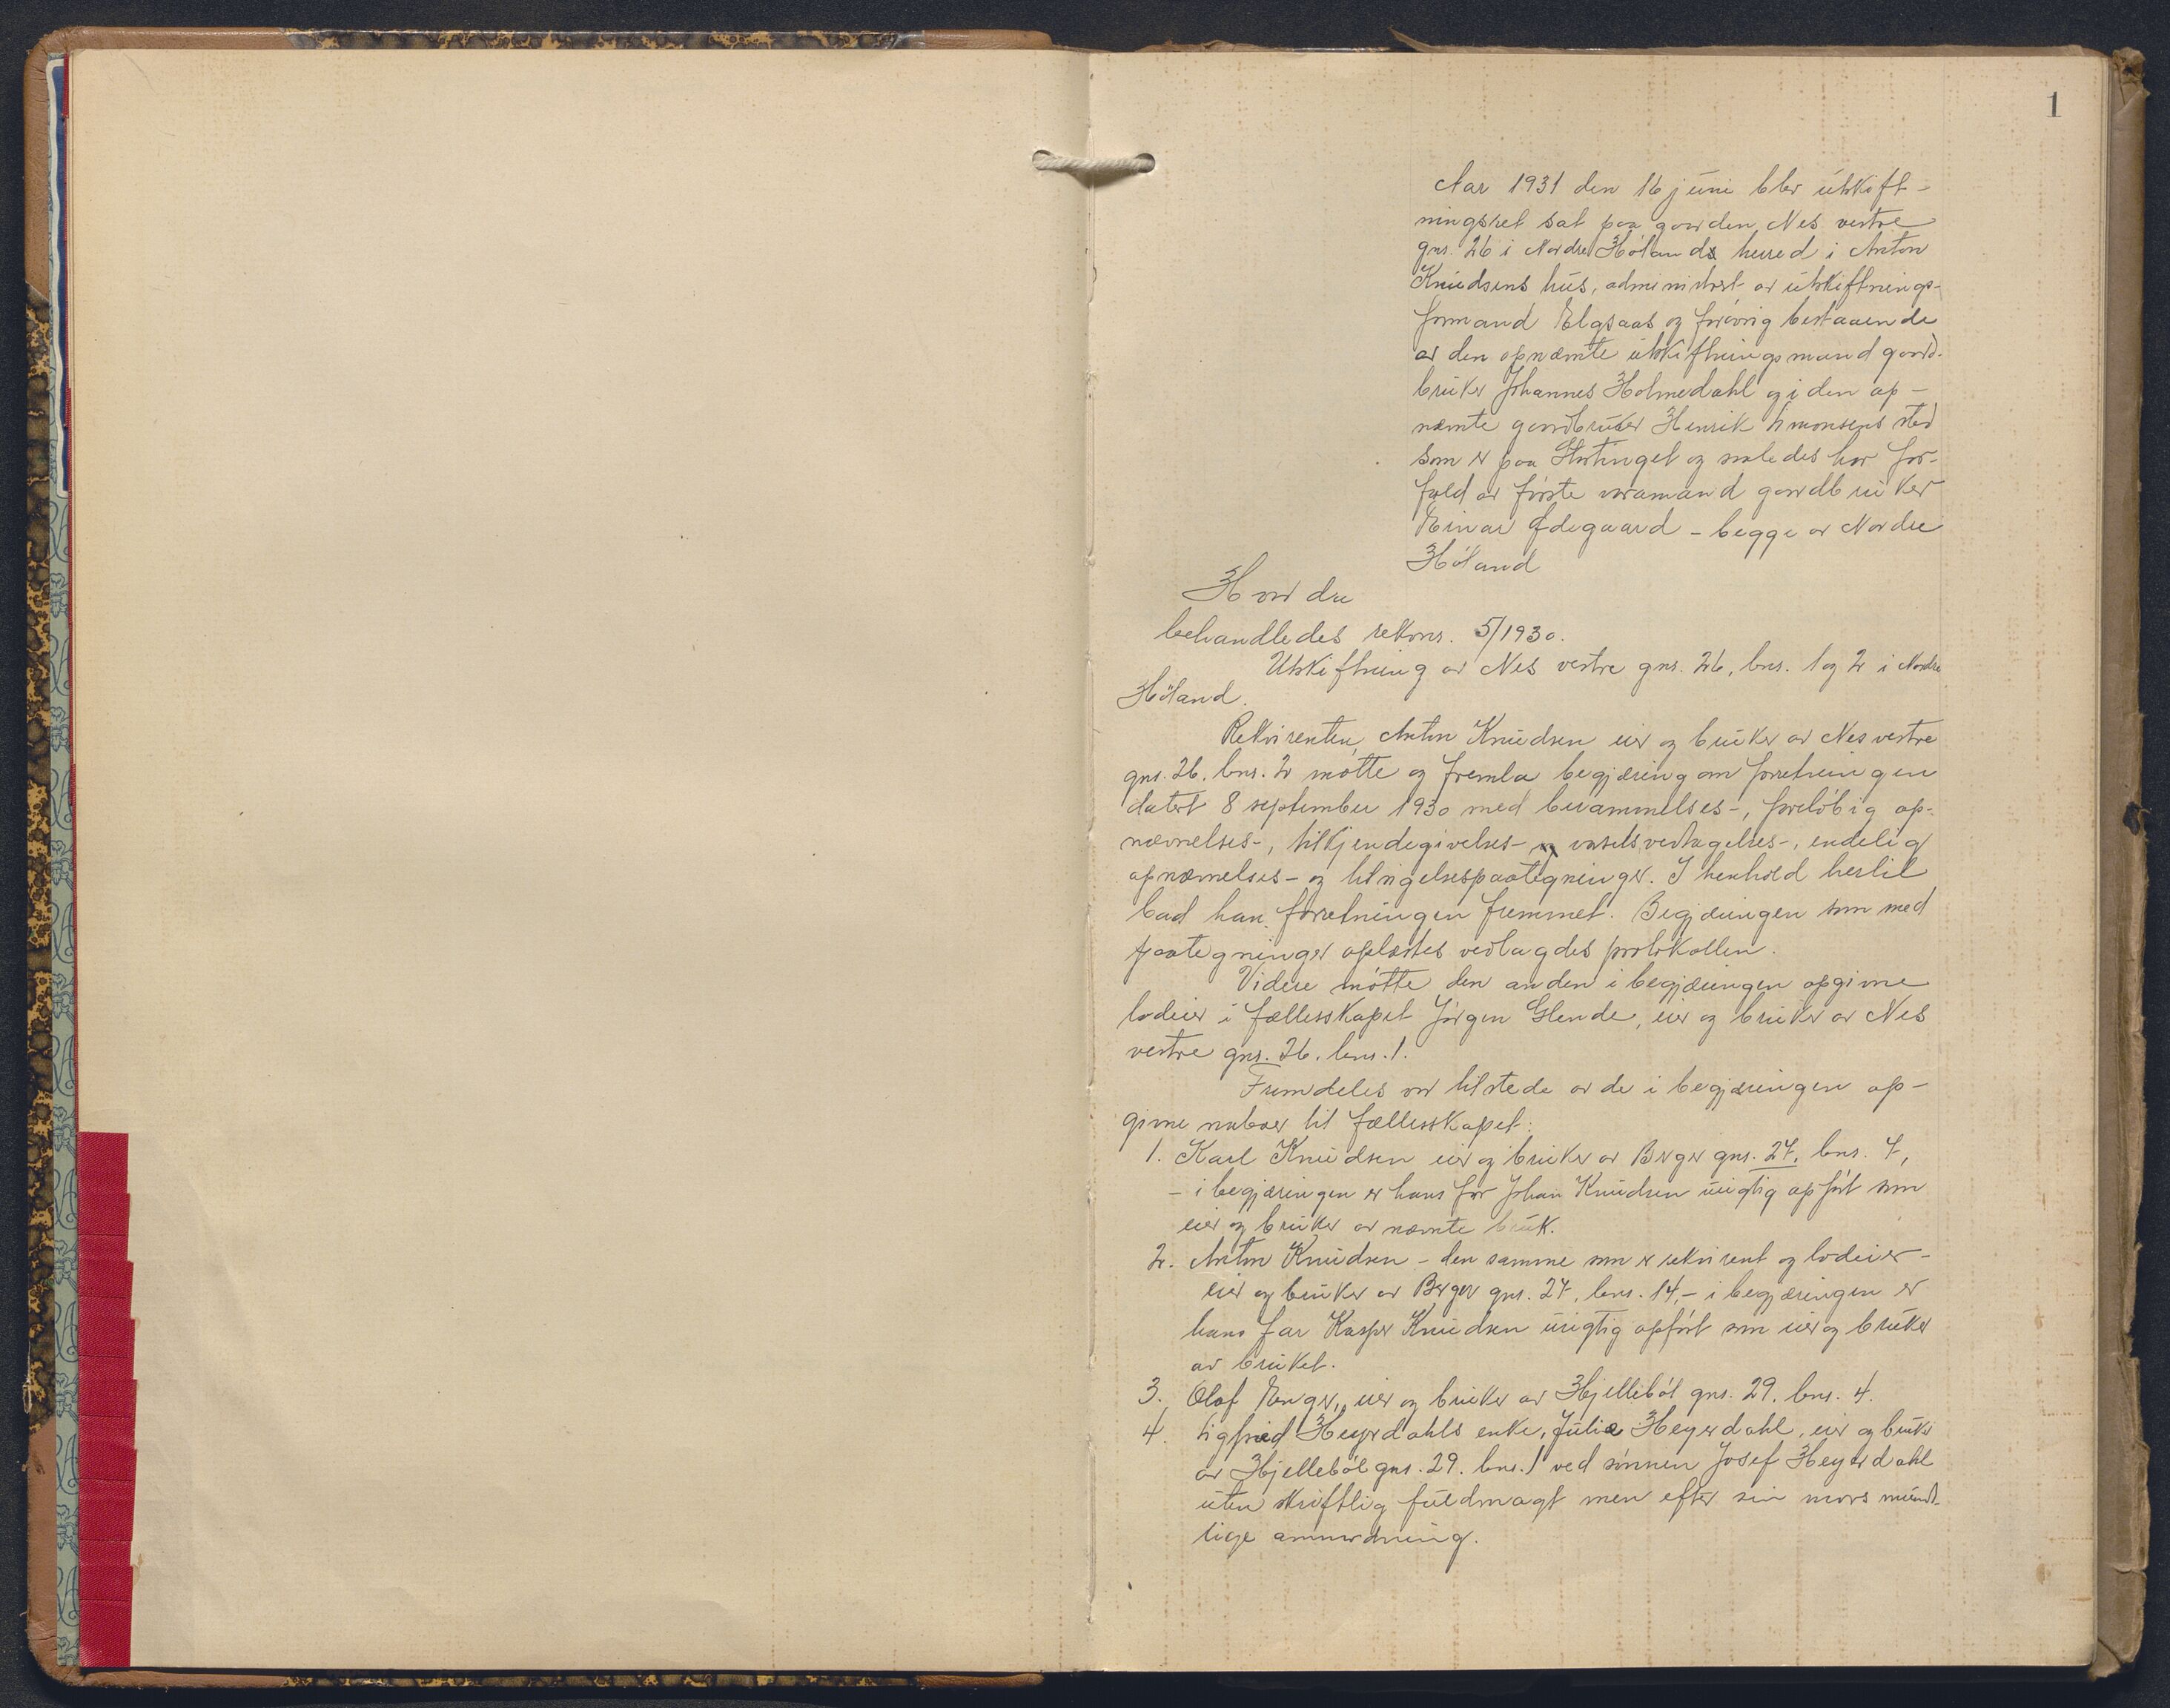 1
Aar 1931 den 16 juni blev utskift-
ningsret sat paa gaarden Nes vestre
gnr. 26 i Nordre Hølands herred i Anton
Knudsens hus, administrert av utskiftnings-
formand Elgsaas og forøvrig bestaaende
av den opnævnte utskiftningsmand gaard-
bruker Johannes Holmedahl og i den op-
nævnte gaardbruker Henrik Simonsens sted
som er paa Stortinget og saaledes har for-
fald av første varamand gaardbruker
Einar Ødegaard - begge av Nordre
Høland
Hvorda
behandledes rekvnr. 5/1930.
Utskiftning av Nes vestre gnr. 26, bnr. 1 og 2 i Nordre
Høland.
Rekvirenten, Anton Knudsen eier og bruker av Nes vestre
gnr. 26. bnr. 2 møtte og fremla begjæring om forretningen
datert 8 september 1930 med berammelses-, foreløbig op-
nævnelses-, tilkjendegivelses- og varselsvedtagelses-, endelig
opnævnelses- og tilsigelsespaategninger. I henhold hertil
bad han forretningen fremmet. Begjæringen som med
paategninger oplæstes vedlagdes protokollen.
Videre møtte den anden i begjæringen opgivne
lodeier i fællesskapet Jørgen Glende, eier og bruker av Nes
vestre gnr. 26. bnr. 1.
Fremdeles var tilstede av de i begjæringen op-
givne naboer til fællesskapet:
1. Karl Knudsen eier og bruker av Berger gnr. 27. bnr. 7,
- i begjæringen er hans far Johan Knudsen urigtig opført som
eier og bruker av nævnte bruk.
2. Anton Knudsen - den samme som er rekvirent og lodeier -
eier og bruker av Berger gnr. 27, bnr. 14, - i begjæringen er
hans far Kasper Knudsen urigtig opført som eier og bruker
av bruket.
3. Olaf Enger, eier og bruker av Hjellebøl gnr. 29. bnr. 4.
4. Sigfried Heyerdahls enke, Julie Heyerdahl, eier og bruker
av Hjellebøl gnr. 29. bnr. 1 ved sønnen Josef Heyerdahl
uten skriftlig fuldmagt men efter sin mors mundt-
lige anmodning.